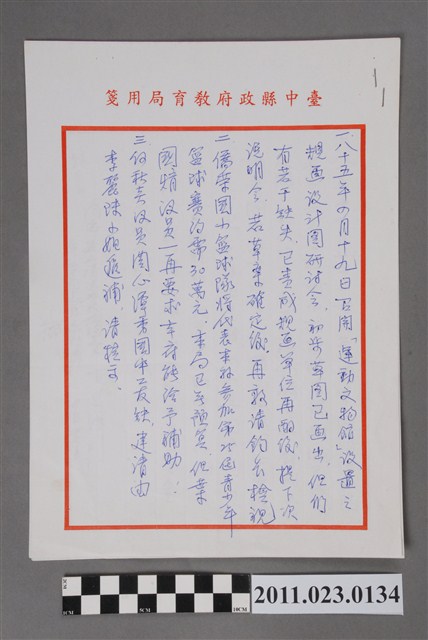 臺中縣政府教育局用箋
一八十五年四月十九日召開「運動文物館」設置之
規畫設計圖研討會，初步草圖已畫出，但仍
有若干缺失，已責成規畫單位再修改，提下次
說明會，若草案確定後，再敦請鈞長檢視
二僑榮國小籃球隊將代表本縣參加第 屆青少年
籃球賽約需30萬元，本局已無預算，但葉
國 議員一再要求本府能給予補助：
三 秋 議員關心潭秀國中工友缺，建請由
李麗 小姐遞補，請核示。
5CM
10CM
2011.023.0134